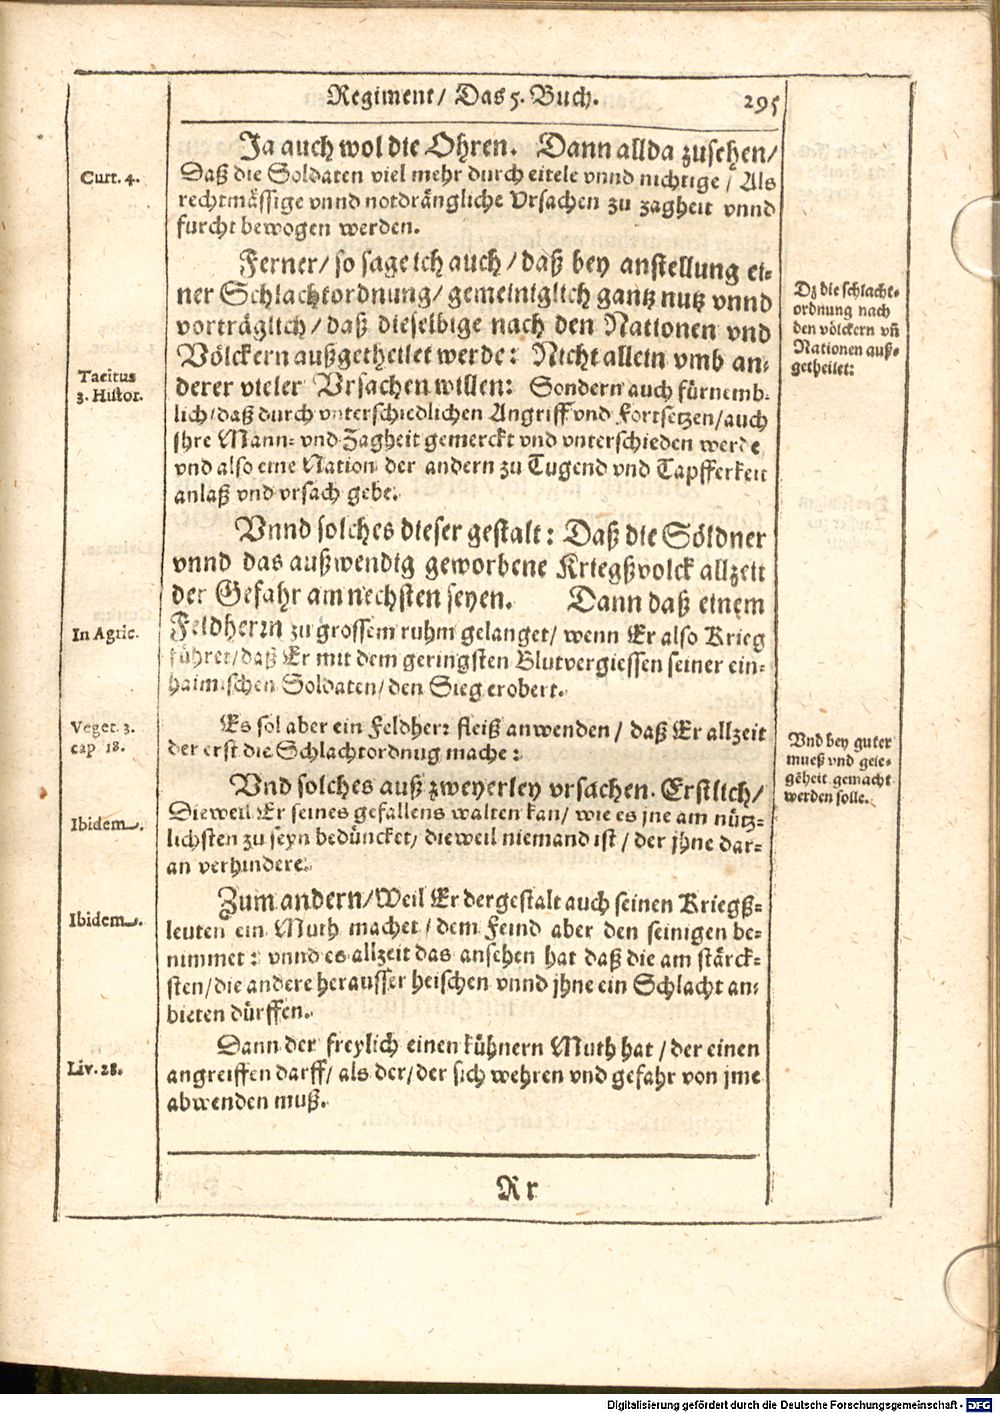 Regiment/ Das 5. Buch.
295
Ja auch wol die Ohren. Dann allda zusehen/
Curt. 4.
Daß die Soldaten viel mehr durch eitele vnnd nichtige / Als
rechtmässige vnnd notdrängliche Vrsachen zu zagheit vnnd
furcht bewogen werden.
Ferner/ so sage ich auch / daß bey anstellung ei-
ner Schlachtordnung/ gemeiniglich gantz nutz vnnd
vorträglich / daß dieselbige nach den Nationen vnd
Völckern außgetheilet werde: Nicht allein vmb an-
derer vieler Vrsachen willen: Sondern auch fürnemb-
lich/ daß durch vnterschiedlichen Angriff vnd Fortsetzen/ auch
jhre Mann- vnd Zagheit gemerckt vnd vnterschieden werde
vnd also eine Nation der andern zu Tugend vnd Tapfferkeit
anlaß vnd vrsach gebe.
Dz die schlacht-
ordnung nach
den völckern vñ
Nationen auß-
getheilet:
Tacitus
3. Histor.
Vnnd solches dieser gestalt: Daß die Söldner
vnnd das außwendig geworbene Kriegßvolck allzeit
der Gefahr am nechsten seyen. Dann daß einem
Feldherrn zu grossem ruhm gelanget/ wenn Er also Krieg
führet/ daß Er mit dem geringsten Blutvergiessen seiner ein-
haimischen Soldaten/ den Sieg erobert.
In Agric.
Es sol aber ein Feldherr fleiß anwenden / daß Er allzeit
der erst die Schlachtordnug mache:
Veget. 3.
cap 18.
Vnd bey guter
mueß vnd gele-
gẽheit gemacht
werden solle.
Vnd solches auß zweyerley vrsachen. Erstlich/
Dieweil Er seines gefallens walten kan/ wie es jne am nütz-
lichsten zu seyn bedüncket/ dieweil niemand ist / der jhne dar-
an verhindere.
Ibidem.
Zum andern/ Weil Er dergestalt auch seinen Kriegß-
leuten ein Muth machet / dem Feind aber den seinigen be-
nimmet: vnnd es allzeit das ansehen hat daß die am stärck-
sten/ die andere herausser heischen vnnd jhne ein Schlacht an-
bieten dürffen.
Ibidem.
Dann der freylich einen kühnern Muth hat / der einen
angreiffen darff/ als der/ der sich wehren vnd gefahr von jme
abwenden muß.
Liv. 28.
Rr
Digitalisierung gefördert durch die Deutsche Forschungsgemeinschaft - DFG